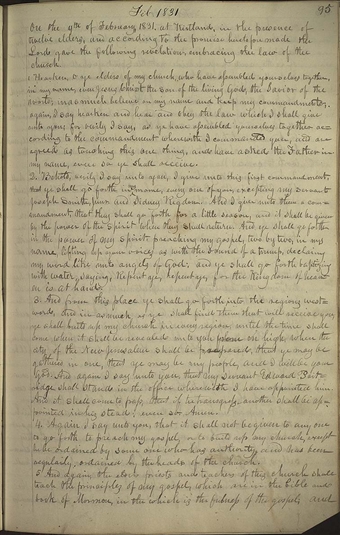 Feb. 1831. 95
On the 9th of February, 1831, at Kirtland, in the presence of
twelve elders, and according to the promise heretofore made the
Lord gave the following revelation, embracing the law of the
church.
1. Hearken, O ye elders of my church, who have assembled yourselves together,
in my name, even Jesus Christ the Son of the living God, the Savior of the
world; inasmuch as believe on my name and keep my commandments;
again, I say hearken and hear and obey the law which I shall give
unto you; for verily I say, as ye have assembled yourselves together ac-
cording to the commandment wherewith I commanded you, and are
agreed as touching this one thing, and have asked the Father in
my name, even so ye shall receive.
2. Behold, verily I say unto you, I give unto you this first commandment,
that ye shall go forth in my name, every one of you, excepting my servant
Joseph Smith, jun. and Sidney Rigdon. And I give unto them a com-
mandment that they shall go forth for a little season, and it shall be given
by the power of the Spirit when they shall return: And ye shall go forth
in the power of my Spirit, preaching my gospel, two by two, in my
name, lifting up your voices as with the sound of a trump, declaring
my word like unto angels of God; and ye shall go forth baptizing
with water, saying, Repent ye, repent ye, for the kingdom of heav-
en is at hand.
3. And from this place ye shall go forth into the regions west-
ward, and in as much as ye shall find them that will receive you,
ye shall build up my church in every region, until the time shall
come when it shall be revealed unto you from on high, when the
city of the New Jerusalem shall be prepared, that ye may be
gathered in one, that ye may be my people, and I will be your
God. And again, I say unto you, that my servant Edward Part-
ridge shall stand in the office wherewith I have appointed him.
And it shall come to pass that if he transgress, another shall be ap-
pointed in his stead; even so: Amen.
4. Again I say unto you, that it shall not be given to any one
to go forth to preach my gospel, or to build up my church, except
he be ordained by some one who has authority, and has been
regularly ordained by the heads of the church.
5. And again, the elders, priests, and teachers of this church shall
teach the principles of my gospel which are in the bible and
book of Mormon, in the which is the fulness of the gospel; and